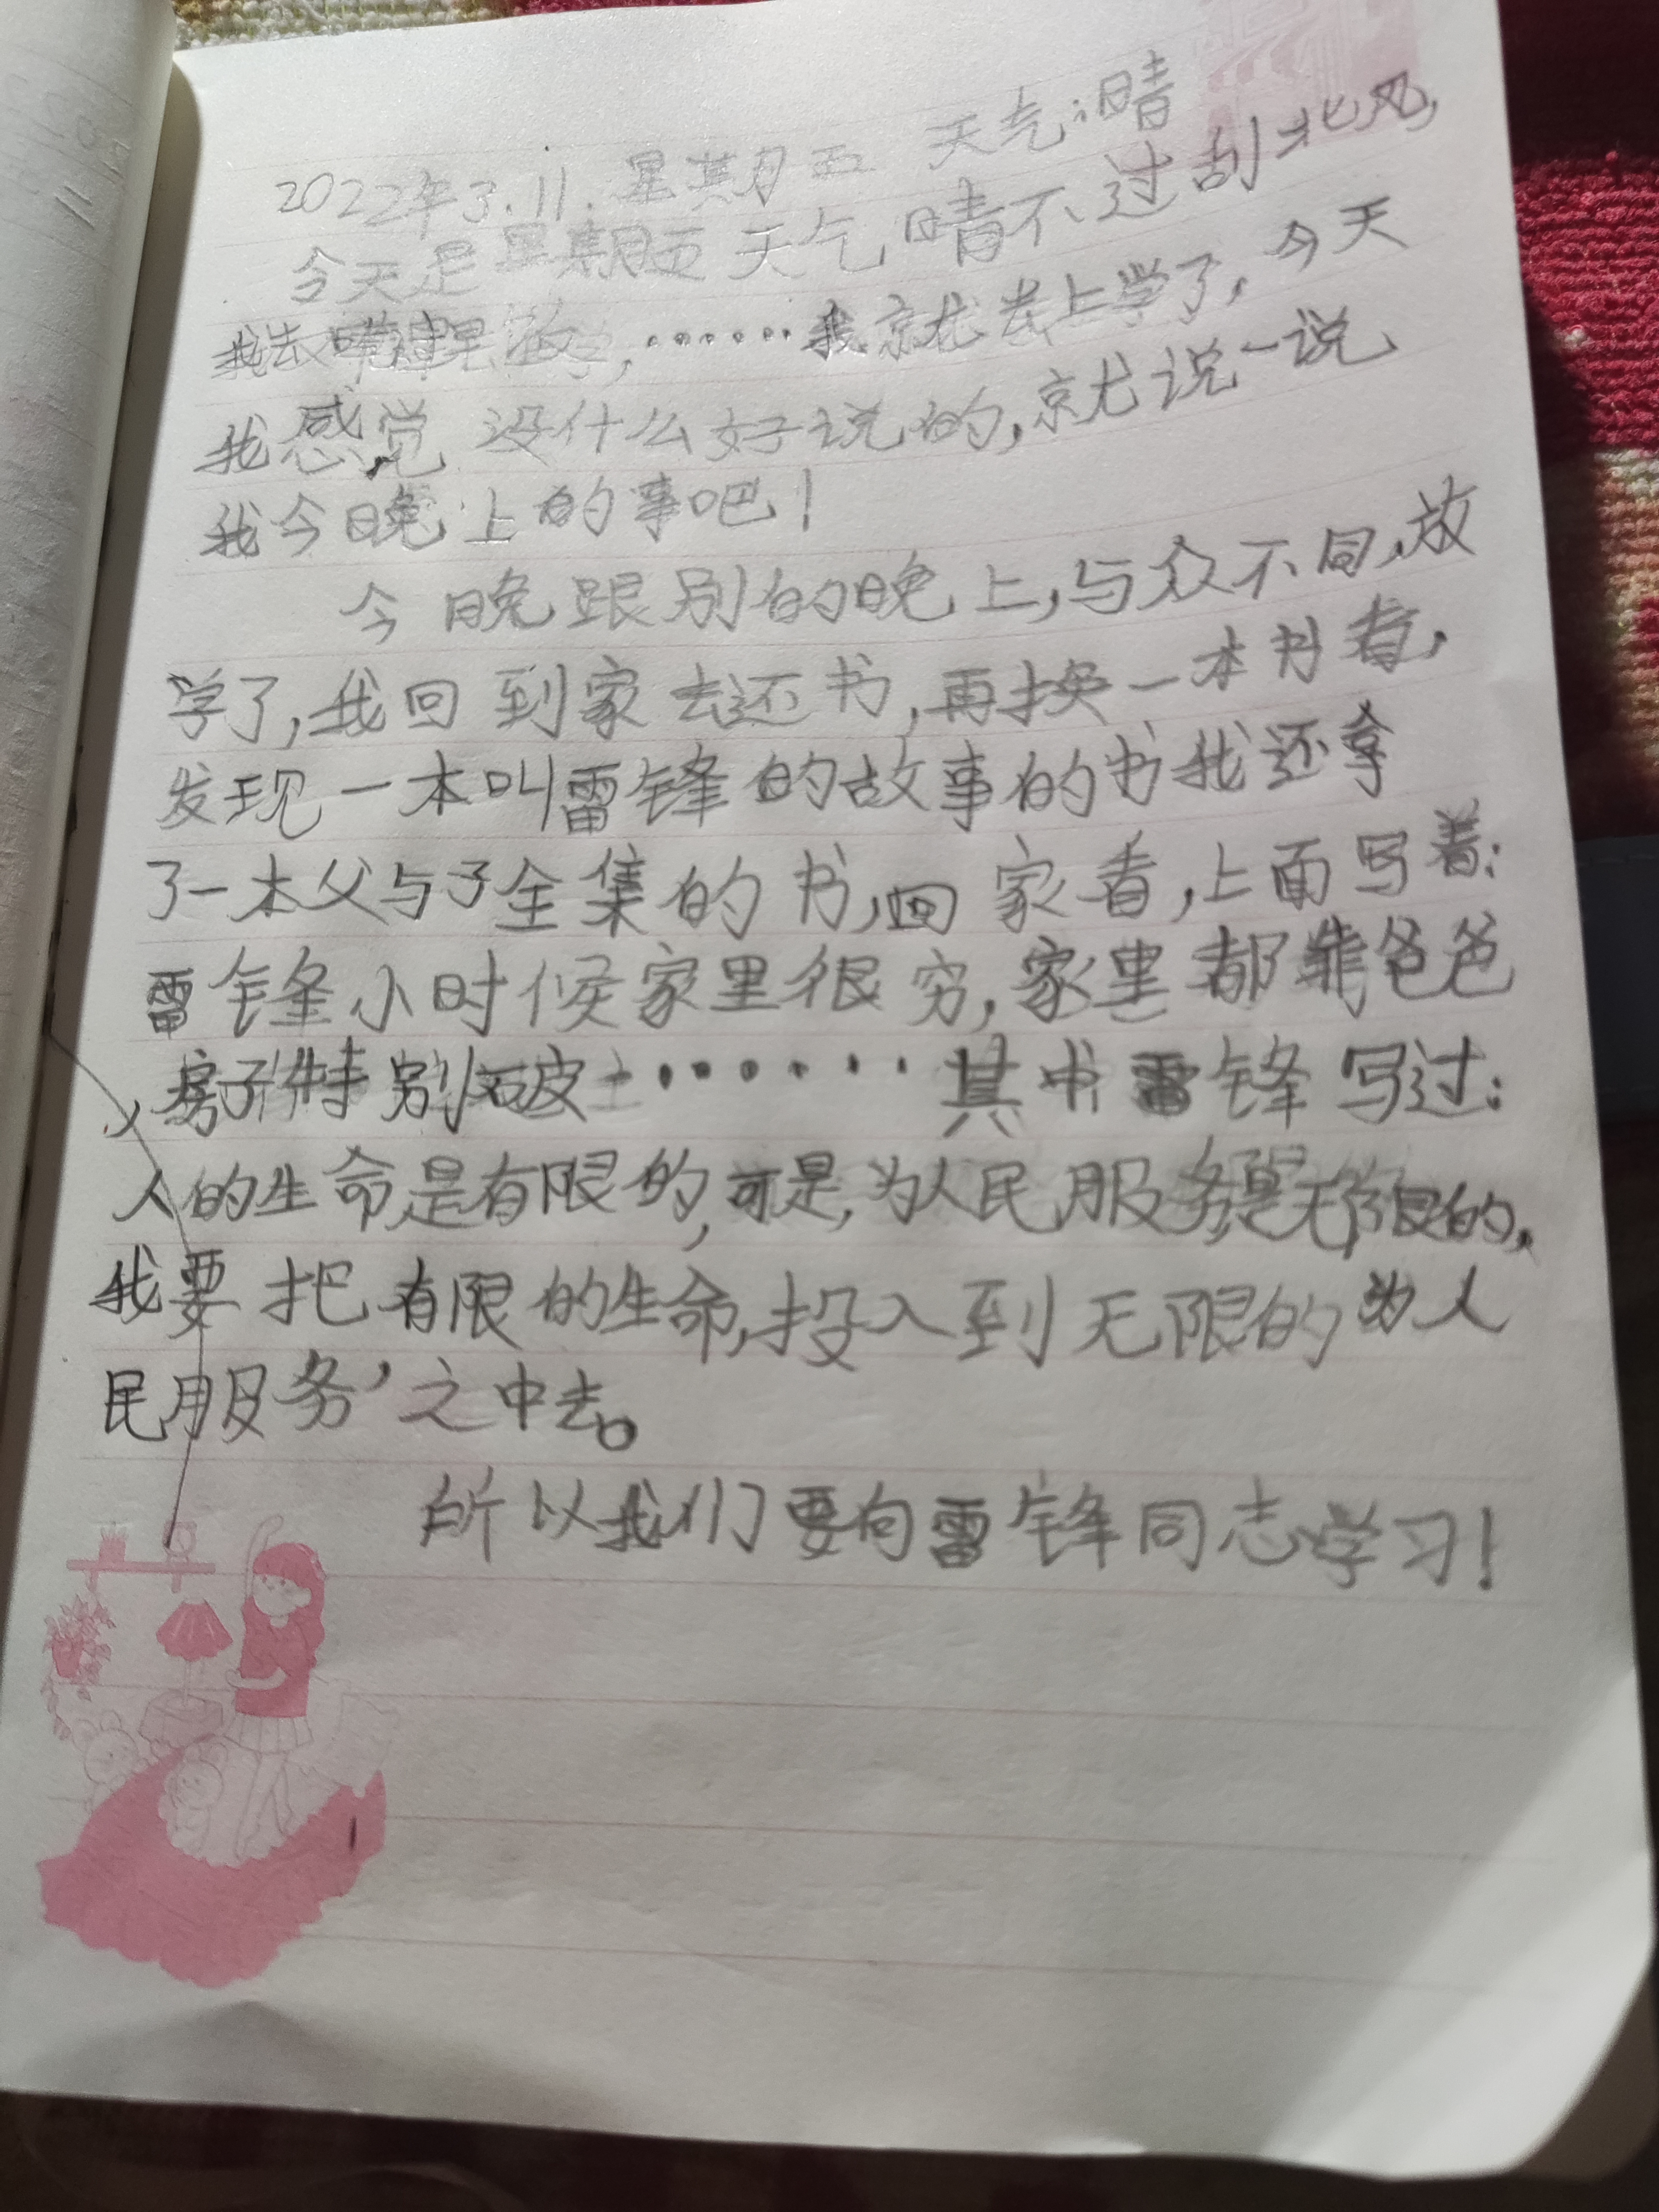 2022年3.11.星期五 天气:晴
今天是星期五天气晴不过刮北风,
我去,······我就去上学了,今天
我感觉没什么好说的,就说一说
我今晚上的事吧!
今晚跟别的晚上,与众不同,放
学了,我回到家去还书,再换一本书看,
发现一本叫雷锋的故事的书我还拿
了一本父与子全集的书,回家看,上面写着:
雷锋小时候家里很穷,家里都靠爸爸
,房子特别破······其中雷锋写过:
人的生命是有限的,可是,为人民服务是无限的,
我要把有限的生命,投入到无限的为人
民服务’之中去。
所以我们要向雷锋同志学习!